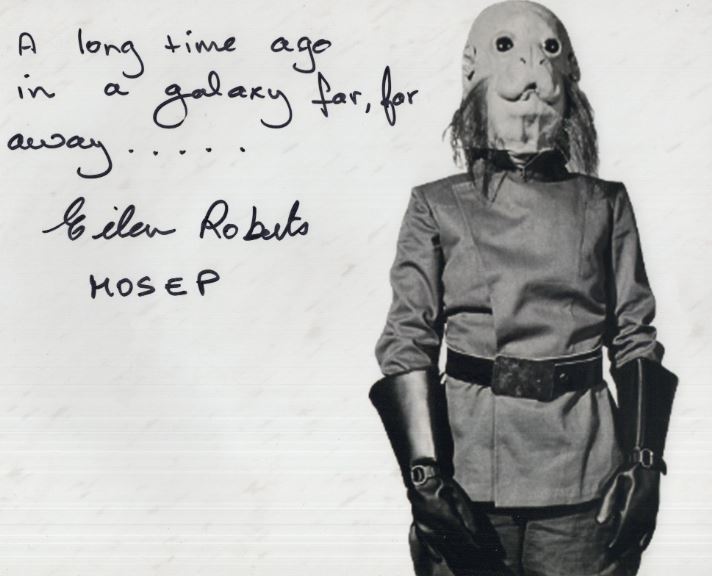 A long time ago
in a galaxy far, far
away.....
Eileen Roberts
MOSEP